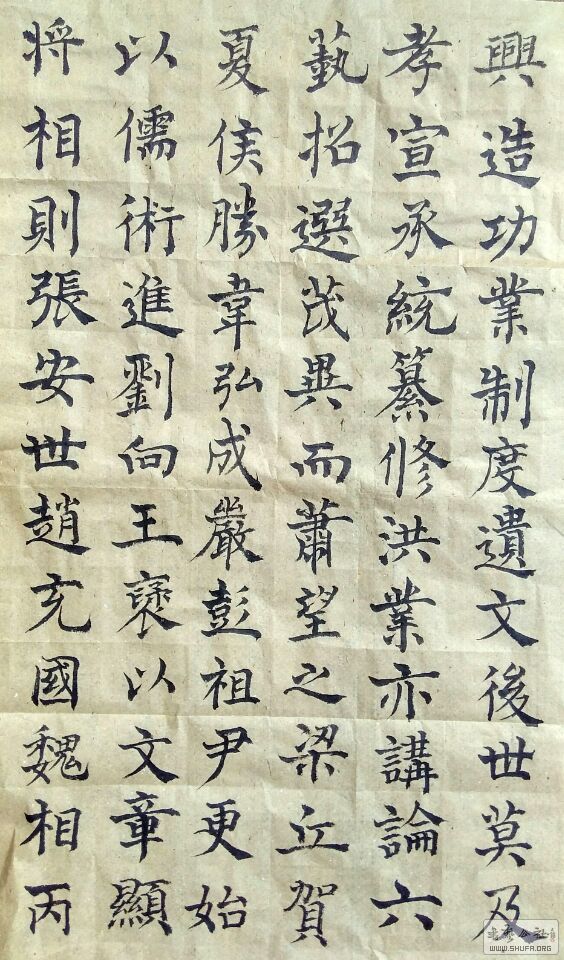 興造功業制度遺文後世莫及
孝宣承統纂修洪業亦講論六
藝招選茂異而蕭望之梁丘賀
夏侯勝韋弘成嚴彭祖尹更始
以儒術進劉向王褒以文章顯
将相則張安世趙充國魏相丙
WWW.SHUFA.ORG